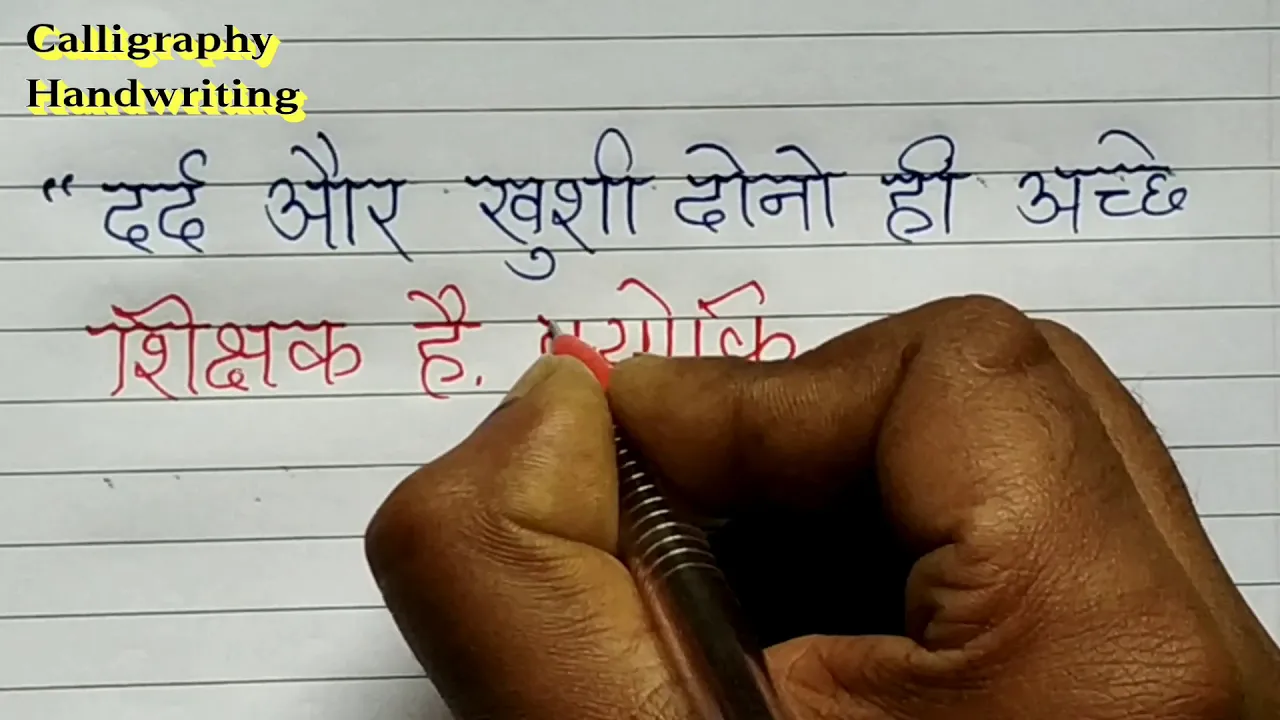 Calligraphy
Handwriting
“ दर्द और खुशी दोनो ही अच्छे
शिक्षक है.